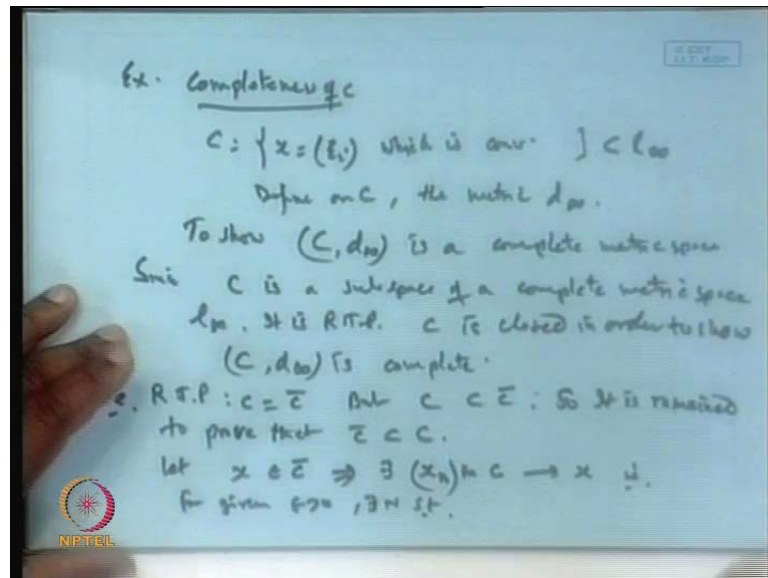 C CET
I.I.T. KGP
Ex. Completeness of C
C = { x = (ξi) which is conv. } ⊂ l∞
Define on C, the metric d∞.
To show (C, d∞) is a complete metric space
Since C is a subspace of a complete metric space
l∞. It is R.T.P. C is closed in order to show
(C, d∞) is complete.
R.T.P : C = C̄ But C ⊂ C̄ : So It is remained
to prove that C̄ ⊂ C.
let x ∈ C̄ ⇒ ∃ (xn) in C → x
for given ε>0, ∃ N s.t.
NPTEL